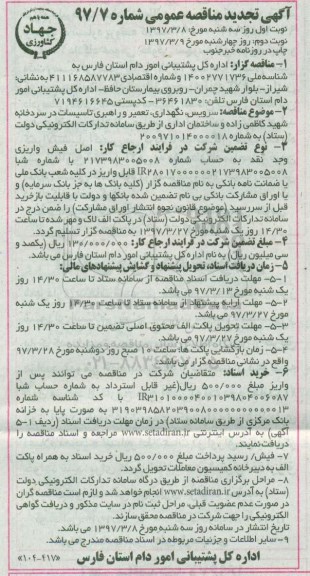 آگهی تجدید مناقصه عمومی شماره ۹۷/۷
نوبت اول: روز سه شنبه مورخ: ۱۳۹۷/۳/۸
نوبت دوم: روز چهارشنبه مورخ ۱۳۹۷/۳/۹
چاپ در روزنامه خبرجنوب
جهاد
کشاورزی
۱- مناقصه گزار: اداره کل پشتیبانی امور دام استان فارس به
شناسه‌ملی ۱۴۰۰۲۷۷۱۷۳۶ و شماره اقتصادی ۴۱۱۱۶۸۵۸۷۷۸۳ به‌نشانی:
شیراز- بلوار شهید چمران- روبروی بیمارستان حافظ- اداره کل پشتیبانی امور
دام استان فارس تلفن: ۳۶۴۶۱۸۳۰ - کدپستی ۷۱۹۴۶۱۶۶۴۵
۲- موضوع مناقصه: سرویس، نگهداری، تعمیر و راهبری تاسیسات در سردخانه
شهید کاظمی زاده و ساختمان اداری از طریق سامانه تدارکات الکترونیکی دولت
(ستاد) به شماره ۲۰۰۹۷۱۰۱۴۰۰۰۰۱۸
۳- نوع تضمین شرکت در فرایند ارجاع کار: اصل فیش واریزی
وجد نقد به حساب شماره ۲۱۷۳۹۸۳۰۰۵۰۰۸ با شماره شبا
قابل واریز در کلیه شعب بانک ملی
یا ضمانت نامه بانکی به نام مناقصه گزار (کلیه بانک ها به جز بانک سرمایه) و
یا اوراق مشارکت بانکی بی نام تضمین شده بانکها و دولت با قابلیت بازخرید
قبل از سررسید (موضوع قانون نحوه انتشار اوراق مشارکت) را ضمن درج در
سامانه تدارکات الکترونیکی دولت (ستاد) در پاکت الف لاک و مهر شده تا ساعت
۱۴/۳۰ روز یک شنبه مورخ ۱۳۹۷/۳/۲۷ به مناقصه گزار تسلیم گردد.
۴- مبلغ تضمین شرکت در فرایند ارجاع کار: ۱۳۰/۰۰۰/۰۰۰ ریال (یکصد و
سی میلیون ریال) به نام اداره کل پشتیبانی امور دام استان فارس می باشد.
۵- زمان دریافت اسناد، تحویل پیشنهاد و گشایش پیشنهادهای مالی:
۵-۱- مهلت دریافت اسناد مناقصه از سامانه ستاد تا ساعت ۱۴/۳۰ روز
یک شنبه مورخ ۹۷/۳/۱۳ می باشد.
۵-۲- مهلت ارایه پیشنهاد از سامانه ستاد تا ساعت ۱۴/۳۰ روز یک شنبه
مورخ ۹۷/۳/۲۷ می باشد.
۵-۳- مهلت تحویل پاکت الف محتوی اصلی تضمین تا ساعت ۱۴/۳۰ روز
یک شنبه مورخ ۹۷/۳/۲۷ می باشد.
۵-۴- زمان بازگشایی پاکت ها: ساعت ۱۰ صبح روز دوشنبه مورخ ۹۷/۳/۲۸
واقع در نشانی مناقصه گزار می باشد.
۶- خرید اسناد: متقاضیان شرکت در مناقصه می توانند پس از
واریز مبلغ ۵۰۰/۰۰۰ ریال(غیر قابل استرداد به شماره حساب شبا
با کد شناسه شماره
به صورت پایا به خزانه
بانک مرکزی از طریق سامانه ستاد) در زمان مهلت دریافت اسناد (ردیف ۱-۵
آگهی) به آدرس اینترنتی www.setadiran.ir مراجعه و اسناد مناقصه را
دریافت‌نمایند.
۷- فیش/ رسید پرداخت مبلغ ۵۰۰/۰۰۰ ریال خرید اسناد به همراه پاکت
الف به دبیرخانه کمیسیون معاملات تحویل گردد.
۸- مراحل برگزاری مناقصه از طریق درگاه سامانه تدارکات الکترونیکی دولت
(ستاد) به آدرس www.setadiran.ir انجام خواهد شد و لازم است مناقصه گران
در صورت عدم عضویت قبلی، مراحل ثبت نام در سایت مذکور و دریافت گواهی
الکترونیکی را جهت شرکت در مناقصه محقق سازند.
تاریخ انتشار در سامانه روز سه شنبه مورخ ۱۳۹۷/۳/۸ می باشد.
۹- سایر اطلاعات و جزئیات مربوطه در اسناد مناقصه مندرج می باشد.
اداره کل پشتیبانی امور دام استان فارس
«۱۰۴-۴۱۷»